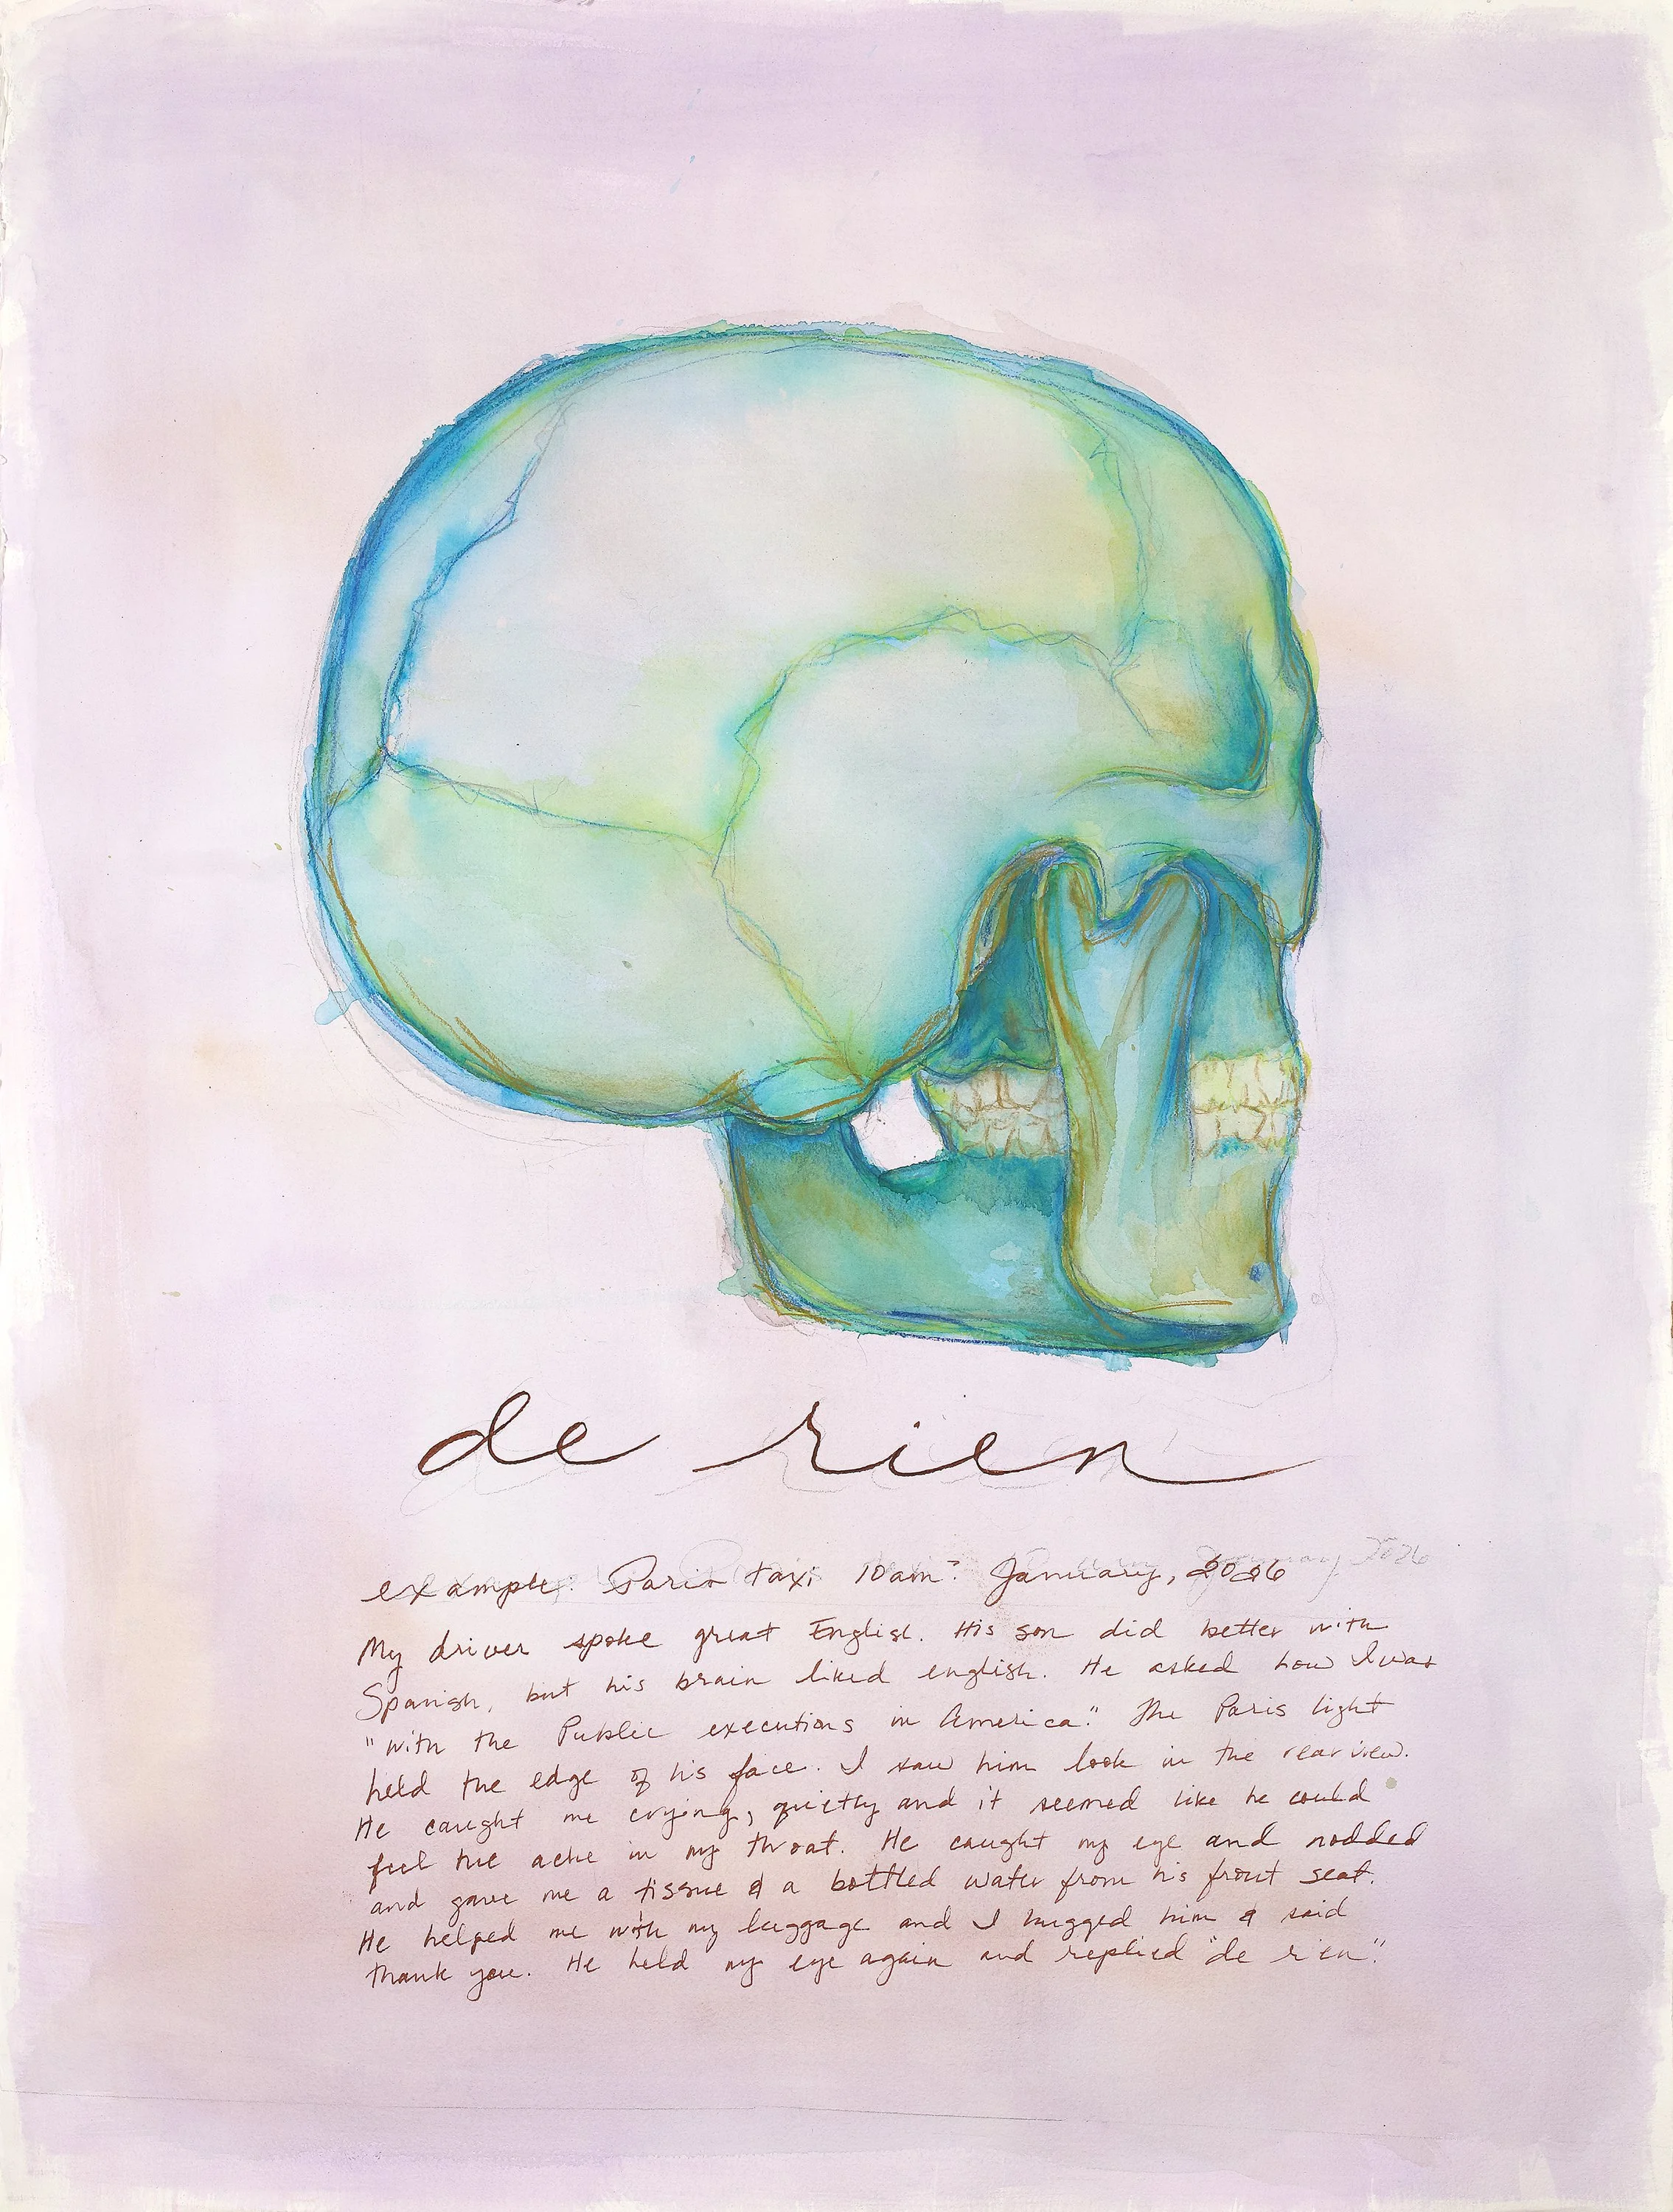 de rien
example: Paris taxi 10am? January, 2026
My driver spoke great English. His son did better with
Spanish, but his brain liked english. He asked how I was
"with the Public executions in America." The Paris light
held the edge of his face. I saw him look in the rear view.
He caught me crying, quietly and it seemed like he could
feel the ache in my throat. He caught my eye and nodded
and gave me a tissue & a bottled water from his front seat.
He helped me with my luggage and I hugged him & said
thank you. He held my eye again and replied "de rien."